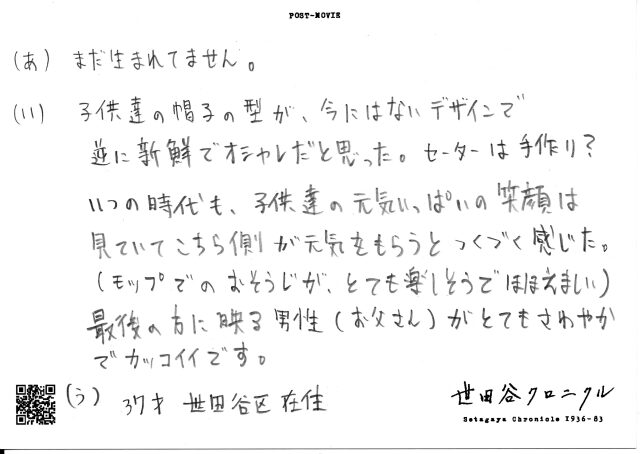 POST-MOVIE
(あ) まだ生まれてません。
(い) 子供達の帽子の型が、今にはないデザインで
逆に新鮮でオシャレだと思った。セーターは手作り?
いつの時代も、子供達の元気いっぱいの笑顔は
見ていてこちら側が元気をもらうとつくづく感じた。
(モップでのおそうじが、とても楽しそうでほほえましい)
最後の方に映る男性(お父さん)がとてもさわやか
でカッコイイです。
(う) 37才 世田谷区在住
世田谷クロニクル
Setagaya Chronicle 1936-83